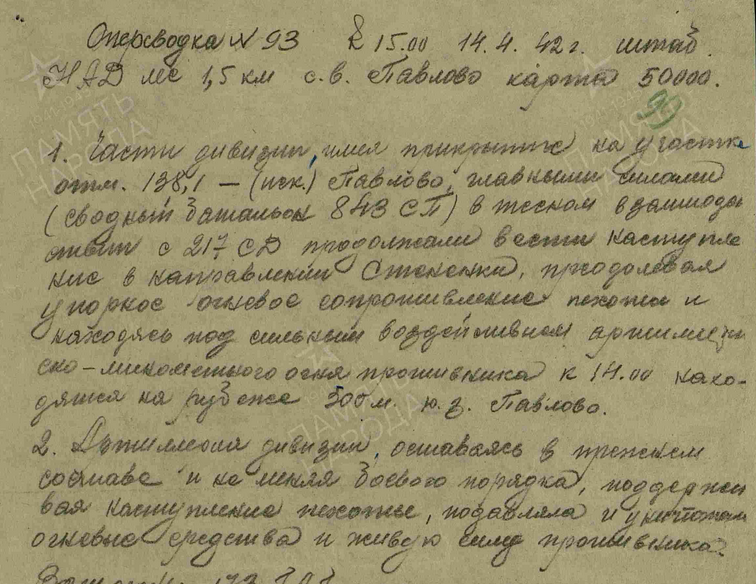 Оперсводка № 93 к 15.00 14.4.42г. штаб
НАД лес 1,5 км с.в. Павлово карта 50000.
99
1. Части дивизии, имея прикрытие на участке
отм. 138,1 – (иск.) Павлово, главными силами
(сводный батальон 843 СП) в тесном взаимодей
ствии с 217 СД продолжали вести наступле
ние в направлении, преодолевая
упорное огневое сопротивление пехоты и
находясь под сильным воздействием артиллерий
ско-минометного огня противника к 14.00 нахо-
дятся на рубеже 300 м. ю.з. Павлово.
2. Артиллерия дивизии, оставаясь в прежнем
составе и не меняя боевого порядка, поддержи
вая наступление пехоты, подавляла и уничтожала
огневые средства и живую силу противника.
ПАМЯТЬ
НАРОДА